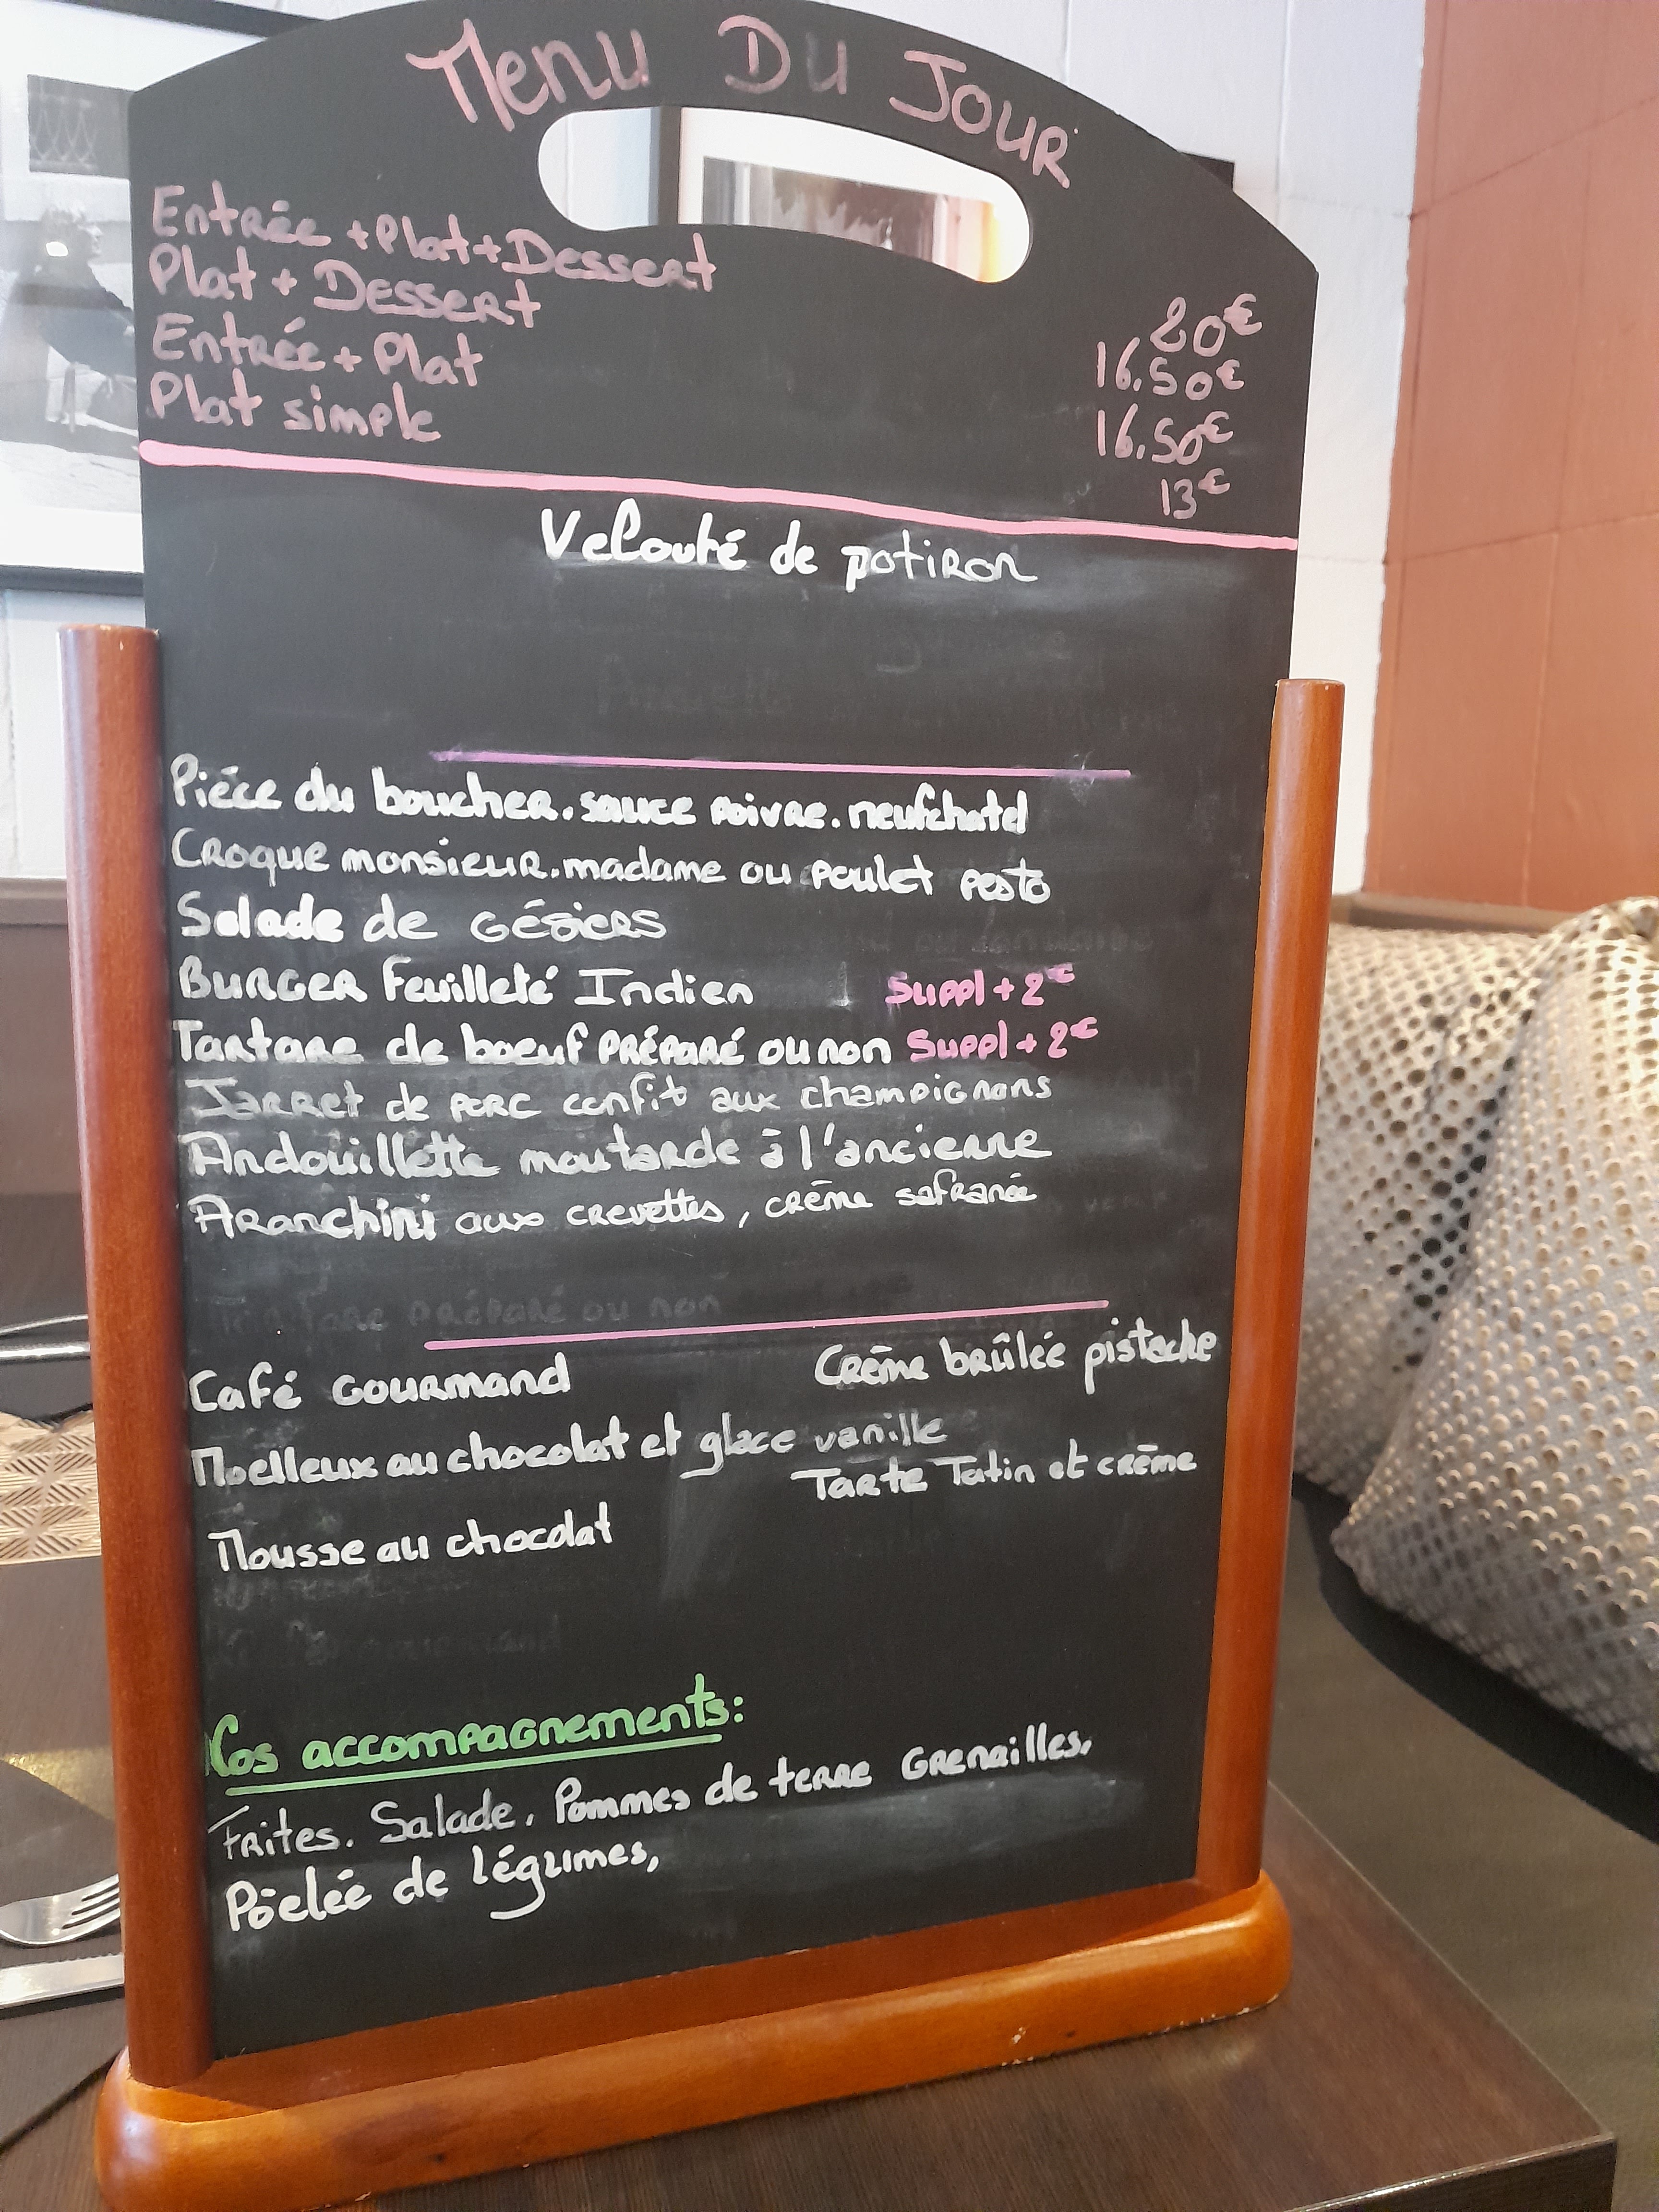 Menu Du Jour
Entrée + Plat + Dessert 20€
Plat + Dessert 16.50€
Entrée + Plat 16.50€
Plat simple 13€
Velouté de potiron
Piéce du boucher. sauce poivre. neufchatel
Croque monsieur. madame ou poulet pesto
Salade de Gésiers
Burger Feuilleté Indien Suppl + 2€
Tartare de boeuf préparé ou non Suppl + 2€
Jarret de porc confit aux champignons
Andouillette moutarde à l'ancienne
Aranchini aux crevettes, crème safranée
Café Gourmand
Crème brûlée pistache
Moelleux au chocolat et glace vanille
Tarte Tatin et crème
Mousse au chocolat
Nos accompagnements:
Frites. Salade. Pommes de terre Grenailles.
Pöelée de légumes,